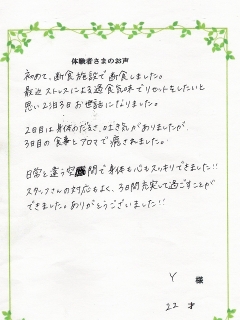 体験者さまのお声
初めて、断食施設で断食しました。
最近ストレスによる過食気味でリセットをしたいと
思い2泊3日お世話になりました。
2日目は身体のだるさ、吐き気がありましたが、
3日目の食事とアロマで癒されました。
日常と違う空間で身体も心もスッキリできました!!
スタッフさんの対応もよく、3日間充実して過ごすことが
できました。ありがとうございました!!
Y 様
22 才